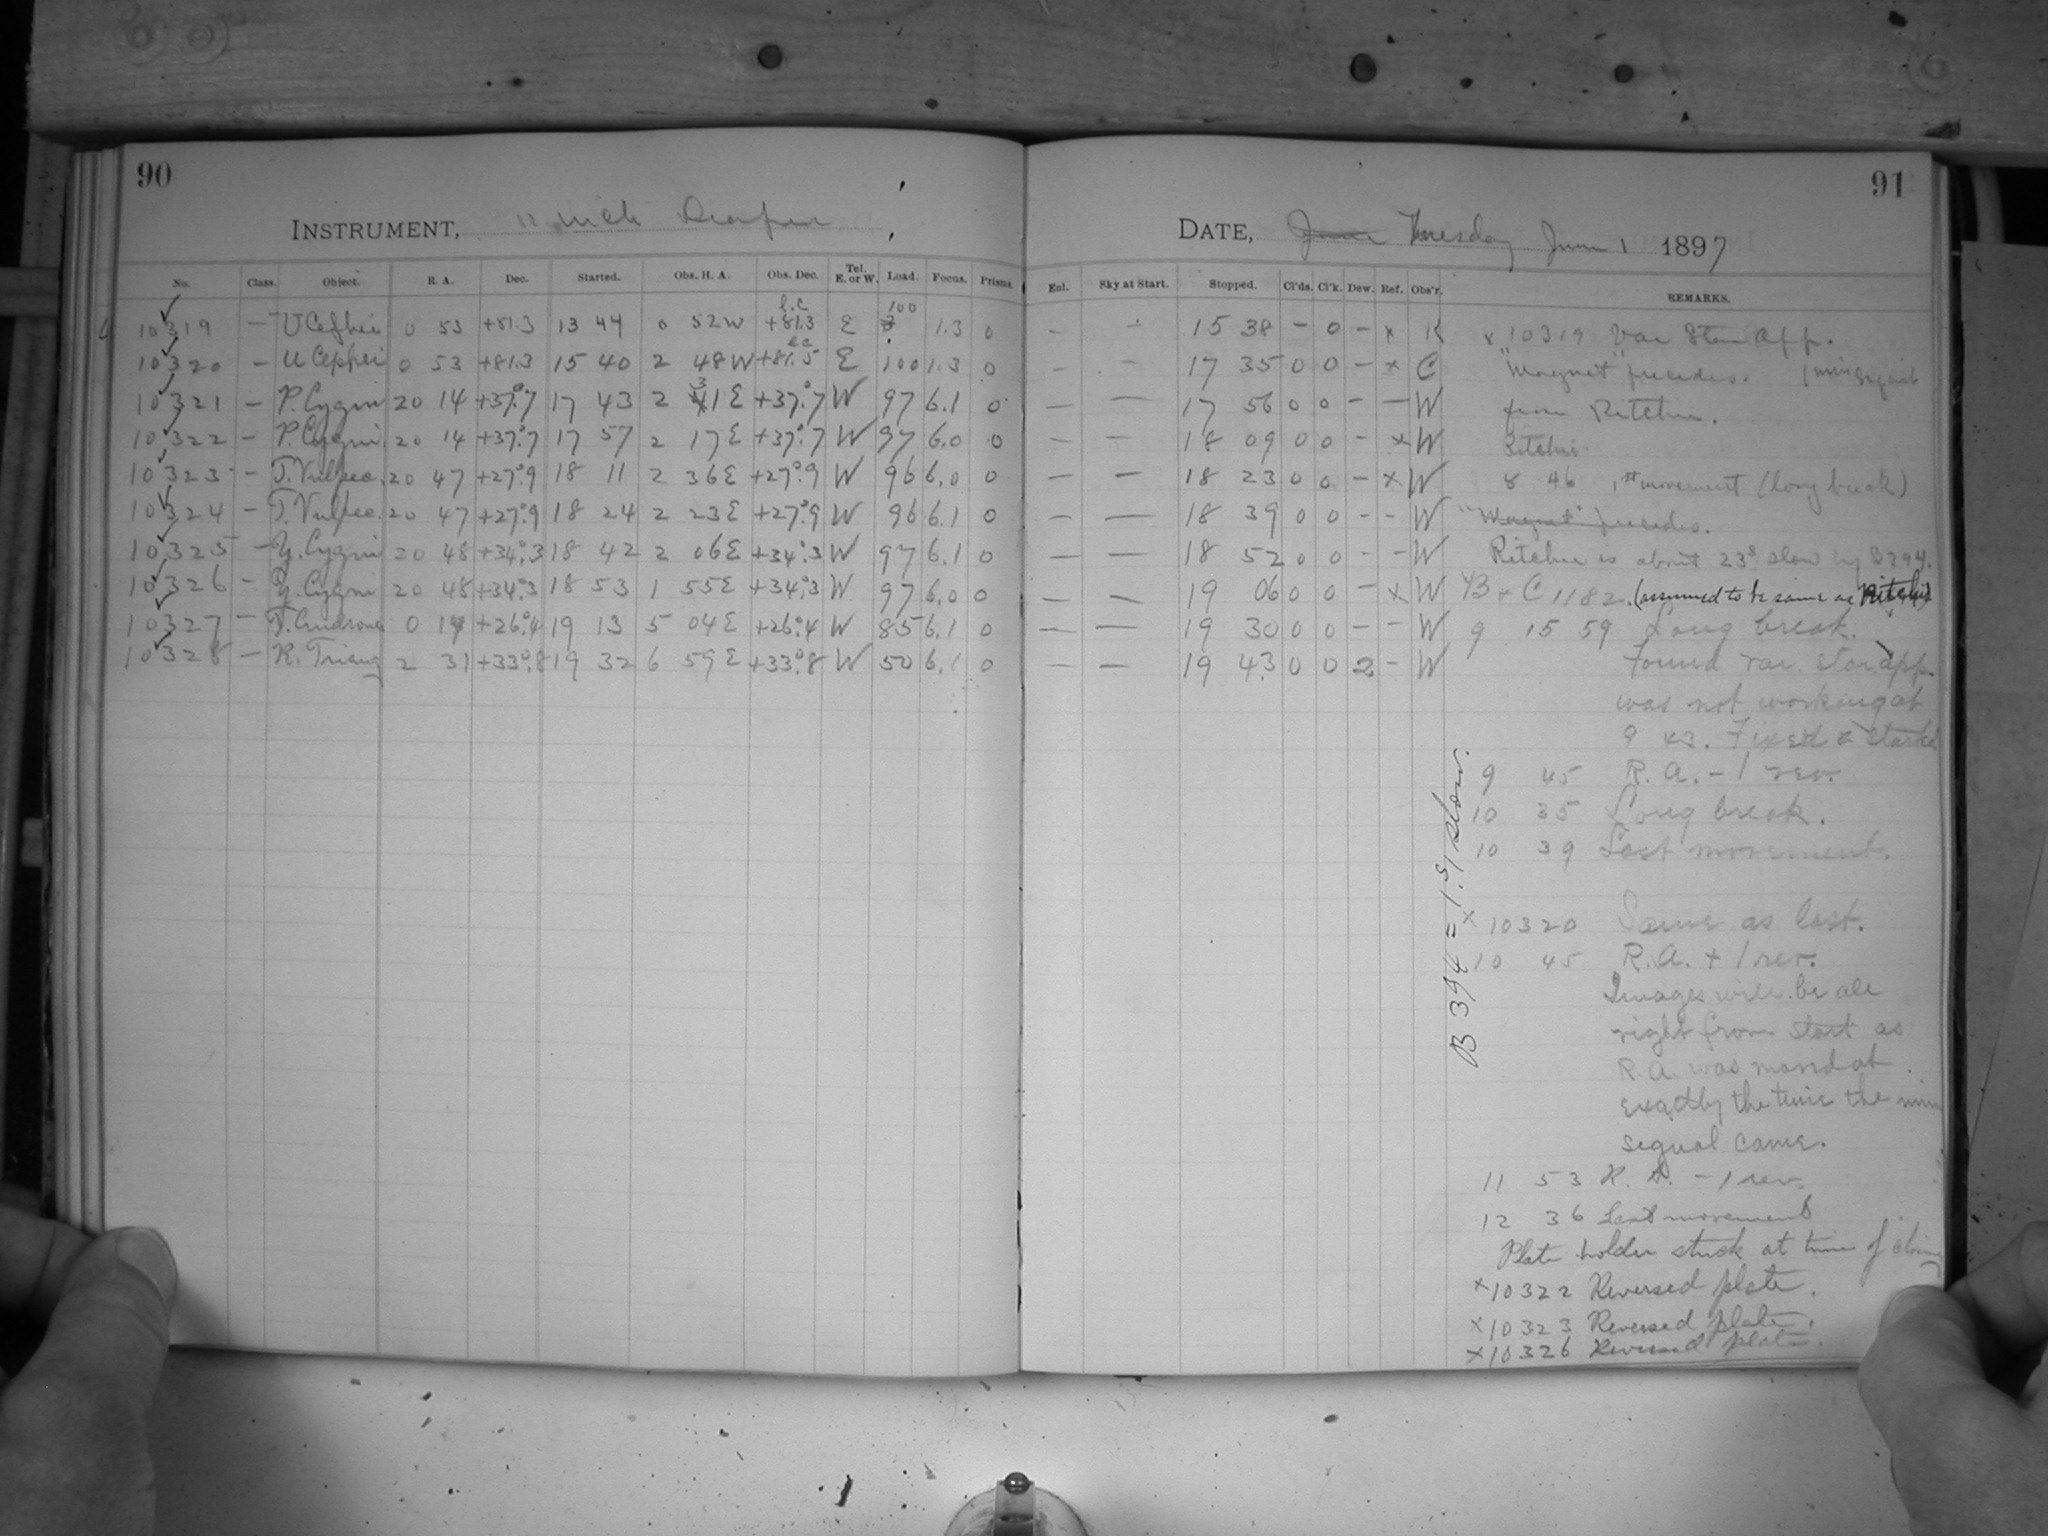 90
INSTRUMENT, 11 inch Draper
No. Class. Object. R. A. Dec. Started. Obs. H. A. Obs. Dec. Tel. E. or W. Load. Focus. Prisms.
10319 — U Cephei 0 53 +81.3 13 44 0 52 W +81.3 E 100 1.3 0
10320 — U Cephei 0 53 +81.3 15 40 2 48 W +81.5 E 100 1.3 0
10321 — P. Cygni 20 14 +37°.7 17 43 2 31 E +37°.7 W 97 6.1 0
10322 — P. Cygni 20 14 +37°.7 17 57 2 17 E +37°.7 W 97 6.0 0
10323 — T. Vulpec. 20 47 +27°.9 18 11 2 36 E +27°.9 W 96 6.0 0
10324 — T. Vulpec. 20 47 +27°.9 18 24 2 23 E +27°.9 W 96 6.1 0
10325 — Y. Cygni 20 48 +34°.3 18 42 2 06 E +34°.3 W 97 6.1 0
10326 — Y. Cygni 20 48 +34°.3 18 53 1 55 E +34°.3 W 97 6.0 0
10327 — T. Androm 0 17 +26°.4 19 13 5 04 E +26°.4 W 85 6.1 0
10328 — R. Triang 2 31 +33°.8 19 32 6 59 E +33°.8 W 50 6.1 0
91
DATE, June Tuesday June 1 1897
Enl. Sky at Start. Stopped. Cl'ds. Cl'k. Dew. Ref. Obs'r. REMARKS.
— — 15 38 — 0 — x K x 10319 Var Star App.
— — 17 35 0 0 — x C "Magnet" precedes. 1 min signal
— — 17 56 0 0 — — W from Ritchie.
— — 18 09 0 0 — x W Ritchie.
— — 18 23 0 0 — x W 8 46 1st movement (long break)
— — 18 39 0 0 — — W "Magnet" precedes.
— — 18 52 0 0 — — W Ritchie is about 23s slow by B394.
— — 19 06 0 0 — x W B + C 1182. (assumed to be same as Ritchie)
— — 19 30 0 0 — — W 9 15 59 Long break.
— — 19 43 0 0 2 — W Found var. star app.
was not working at
9 43. Fixed & started
9 45 R. A. – 1 rev.
10 35 Long break.
10 39 Last movement.
B 394 = 1.s1 slow.
x 10320 Same as last.
10 45 R. A. + 1 rev.
Images will be all
right from start as
R. A. was moved at
exactly the time the min
signal came.
11 53 R. A. – 1 rev.
12 36 Last movement
Plate holder stuck at time of closing
x 10322 Reversed plate.
x 10323 Reversed plate.
x 10326 Reversed plate.